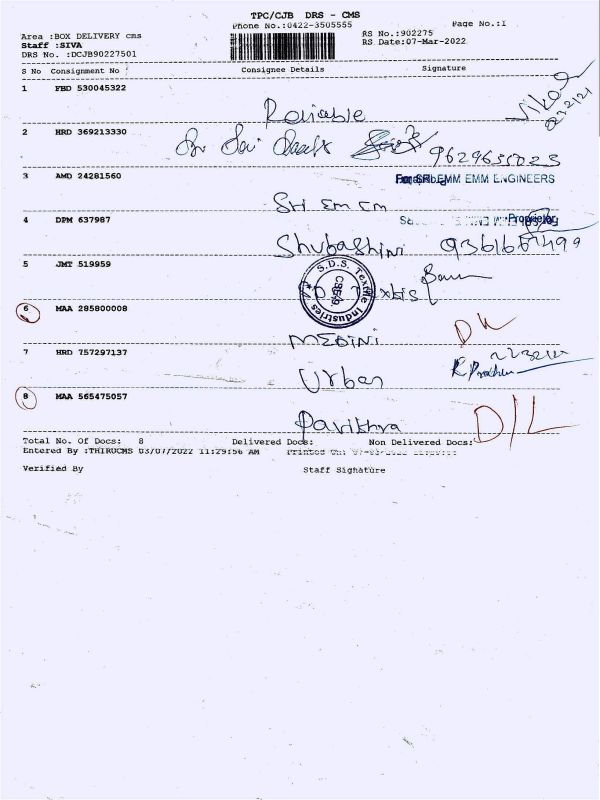 TPC/CJB DRS - CMS
Phone No.:0422-3505555
Page No.:1
Area :BOX DELIVERY cms
RS No.:902275
Staff :SIVA
RS Date:07-Mar-2022
DRS No. :DCJB90227501
S No Consignment No Consignee Details Signature
1 FBD 530045322
Reliable
2 HRD 369213330
Sri Sai
9629635023
3 AMD 24281560
For SRI EMM EMM ENGINEERS
Sri Em Em
4 DPM 637987
Proprietor
Shubashini
5 JMT 519959
S.D.S. Textile Industries
6 MAA 285800008
MEDINI
7 HRD 757297137
Urban
8 MAA 565475057
Pavithra
D/L
Total No. Of Docs: 8 Delivered Docs: Non Delivered Docs:
Entered By :THIRUCMS 03/07/2022 11:29:56 AM Printed On:
Verified By Staff Signature